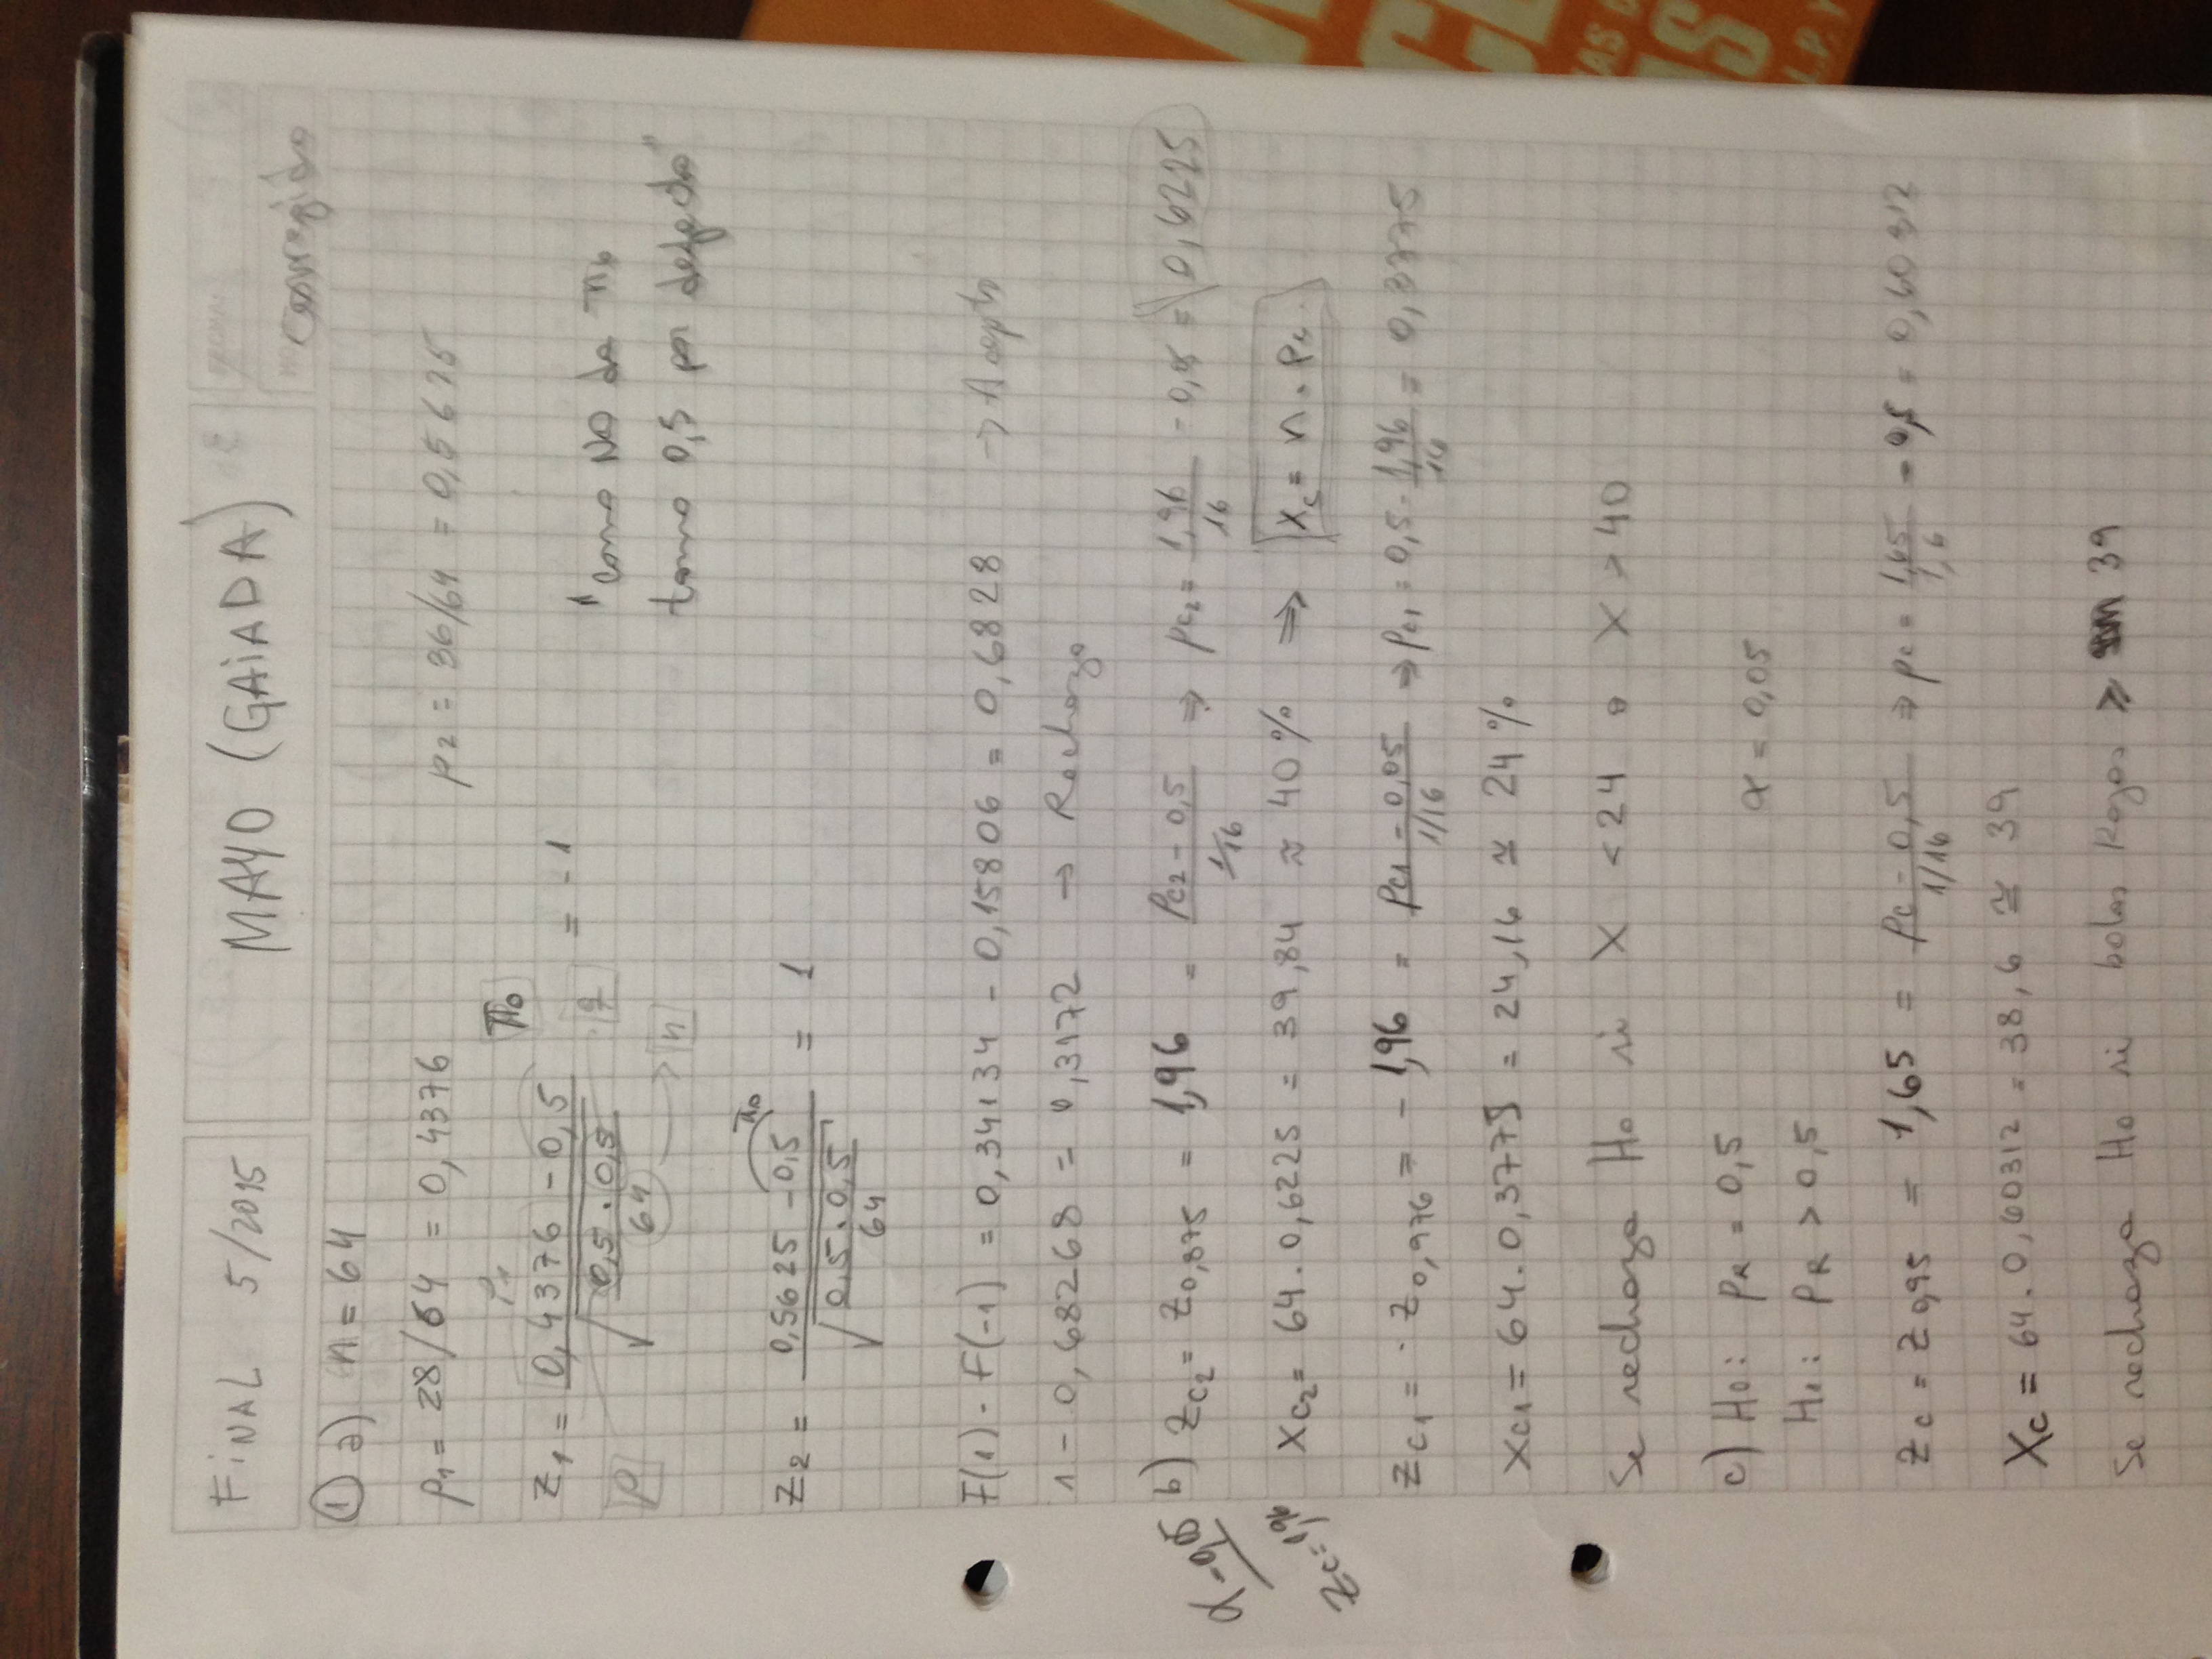 FINAL 5/2015
MAYO (GAIADA)
FECHA:
Corregido
① a) n = 64
p1 = 28/64 = 0,4376
p2 = 36/64 = 0,5625
P1
π0
Z1 = 0,4376 - 0,5 / √(0,5 . 0,5 / 64) = -1
p
q
n
"como NO da π0
tomo 0,5 por defecto"
π0
Z2 = 0,5625 - 0,5 / √(0,5 . 0,5 / 64) = 1
F(1) - F(-1) = 0,34134 - 0,15806 = 0,6828 → Acepto
1 - 0,68268 = 0,3172 → Rechazo
α = 0,05
Zc = 1,96
b) Zc2 = Z0,875 = 1,96 = pc2 - 0,5 / 1/16 ⇒ pc2 = 1,96/16 - 0,5 = 0,6225
Xc2 = 64 . 0,6225 = 39,84 ≈ 40% ⇒ Xc = n . pc
Zc1 = - Z0,976 = - 1,96 = pc1 - 0,05 / 1/16 ⇒ pc1 = 0,5 - 1,96/16 = 0,3775
Xc1 = 64 . 0,3775 = 24,16 ≅ 24%
Se rechaza H0 si X < 24 o X > 40
c) H0: pR = 0,5
α = 0,05
H1: pR > 0,5
Zc = Z0,95 = 1,65 = pc - 0,5 / 1/16 ⇒ pc = 1,65/1,6 - 0,5 = 0,60312
Xc = 64 . 0,60312 = 38,6 ≅ 39
Se rechaza H0 si bolas Rojas ≥ 39